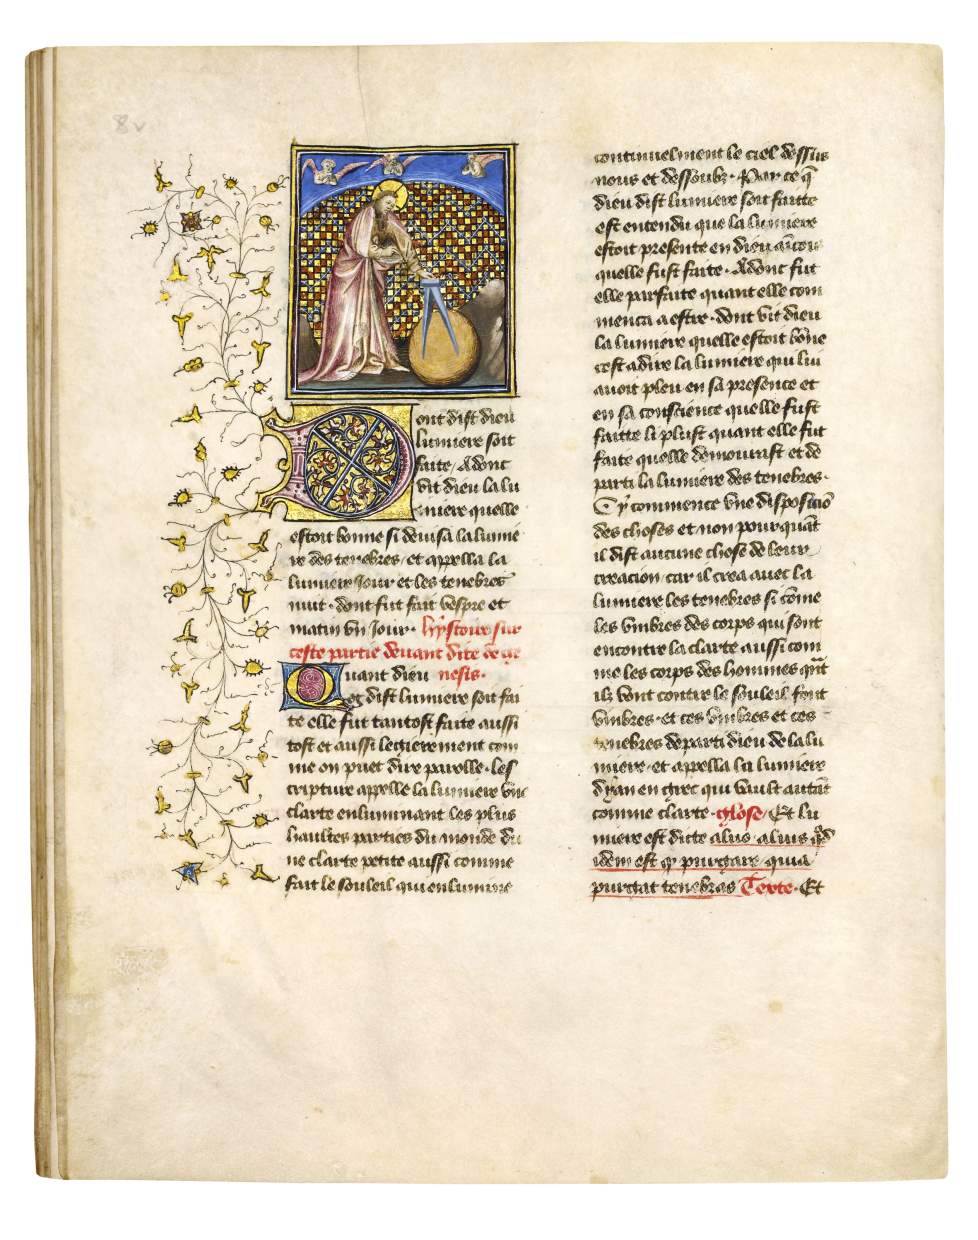 8v
Dont dist dieu
lumiere soit
faite / Adont
vit dieu la lu
miere quelle
estoit bonne si deuisa la lumie
re des tenebres / et appella la
lumiere Jour et les tenebres
nuit · dont fut fait vespre et
matin vn Jour · hystoire sur
ceste partie deuant dite de ge
Quant dieu nesis ·
dist lumiere soit fai
te elle fut tantost faite aussi
tost et aussi legierement com
me on puet dire parolle · les
cripture appelle la lumiere vne
clarte enluminant les plus
haultes parties du monde du
ne clarte petite aussi comme
fait le souleil qui enlumine
continuelment le ciel dessus
nous et dessoubz · Par ce q̄
dieu dist lumiere soit faitte
est entendu que la lumiere
estoit presente en dieu
quelle fust faite · Adont fut
elle parfaite quant elle com
menca a estre · dont vit dieu
la lumiere quelle estoit bōne
cest adire la lumiere qui lui
auoit pleu en sa presence et
en sa conscience quelle fust
faitte li plust quant elle fut
faite quelle demourast et de
parti la lumiere des tenebres ·
Cy commence vne disposicō
des choses et non pourquāt
il dist aucune chose de leur
creacion / car il crea auec la
lumiere les tenebres si cōme
les vmbres des corps qui sont
encontre la clarte aussi com
me les corps des hommes qn̄t
ilz vont contre le souleil font
vmbres · et ces vmbres et ces
tenebres departi dieu de la lu
miere · et appella la lumiere
dyan en grec qui vault autāt
comme clarte · glose / Et lu
miere est dicte alus · aluis qd̄
idem est q̄ purgare / quia
purgat tenebras Texte · Et